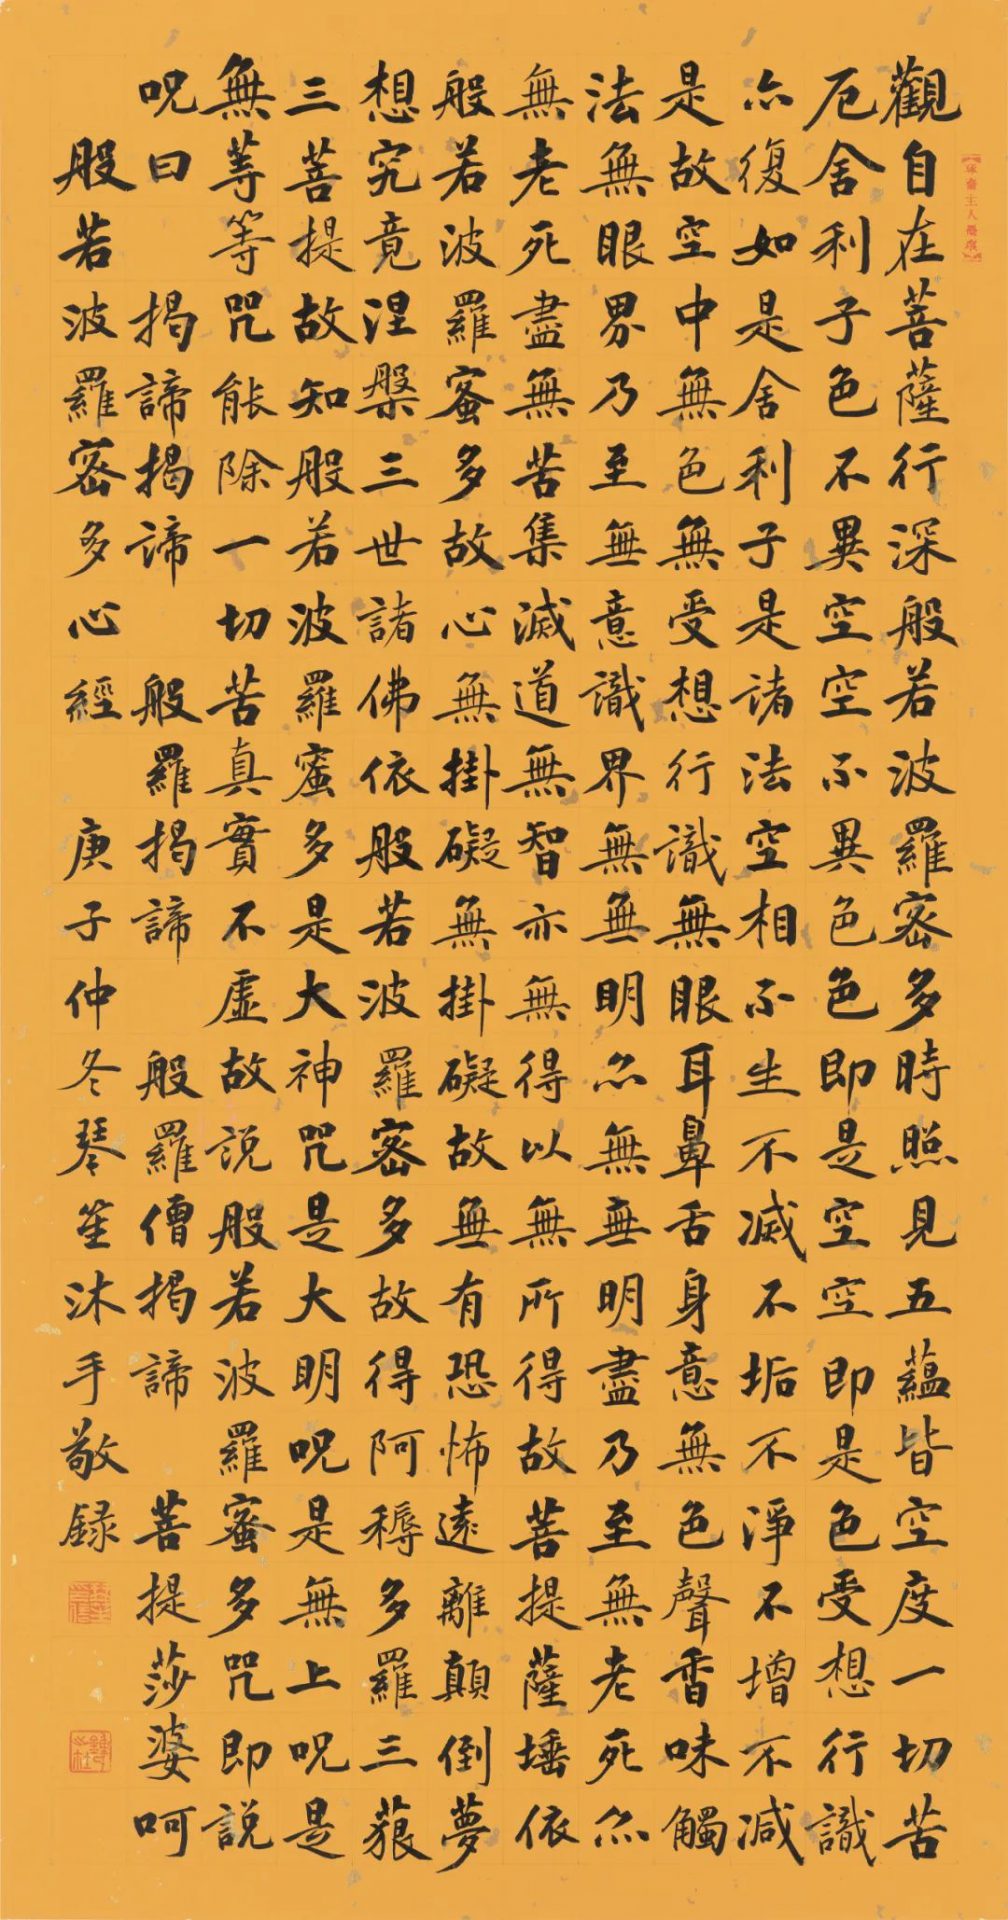 觀自在菩薩行深般若波羅密多時照見五蘊皆空度一切苦
厄舍利子色不異空空不異色色即是空空即是色受想行識
亦復如是舍利子是諸法空相不生不滅不垢不淨不增不減
是故空中無色無受想行識無眼耳鼻舌身意無色聲香味觸
法無眼界乃至無意識界無無明亦無無明盡乃至無老死亦
無老死盡無苦集滅道無智亦無得以無所得故菩提薩埵依
般若波羅蜜多故心無掛礙無掛礙故無有恐怖遠離顛倒夢
想究竟涅槃三世諸佛依般若波羅密多故得阿耨多羅三藐
三菩提故知般若波羅蜜多是大神咒是大明呪是無上呪是
無等等咒能除一切苦真實不虛故說般若波羅蜜多咒即說
呪曰 揭諦揭諦 般羅揭諦 般羅僧揭諦 菩提莎婆呵
般若波羅密多心經 庚子仲冬琴笙沐手敬録